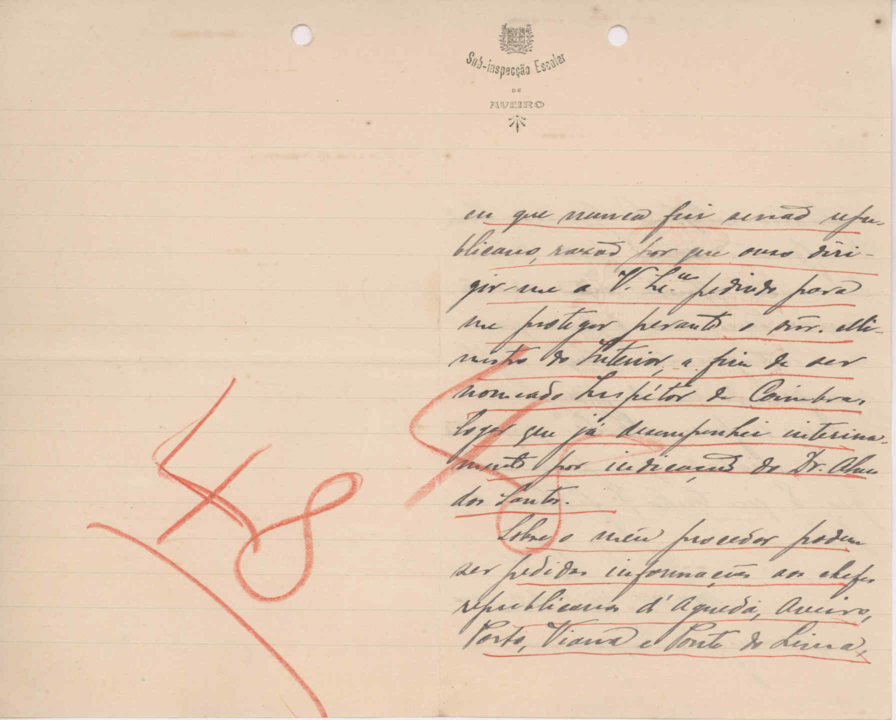 Sub-inspecção Escolar
DE
AVEIRO
eu que nunca fui senão repu-
blicano, razão por que ouso diri-
gir-me a V. Ex.ª pedindo para
me proteger perante o snr. Mi-
nistro do Interior, a fim de ser
nomeado Inspétor de Coimbra,
logar que já desempenhei interina-
mente por indicação do Dr. Alves
dos Santos.
Sobre o meu proceder podem
ser pedidas informações aos chefes
republicanos d'Agueda, Aveiro,
Porto, Viana e Ponte do Lima,
48